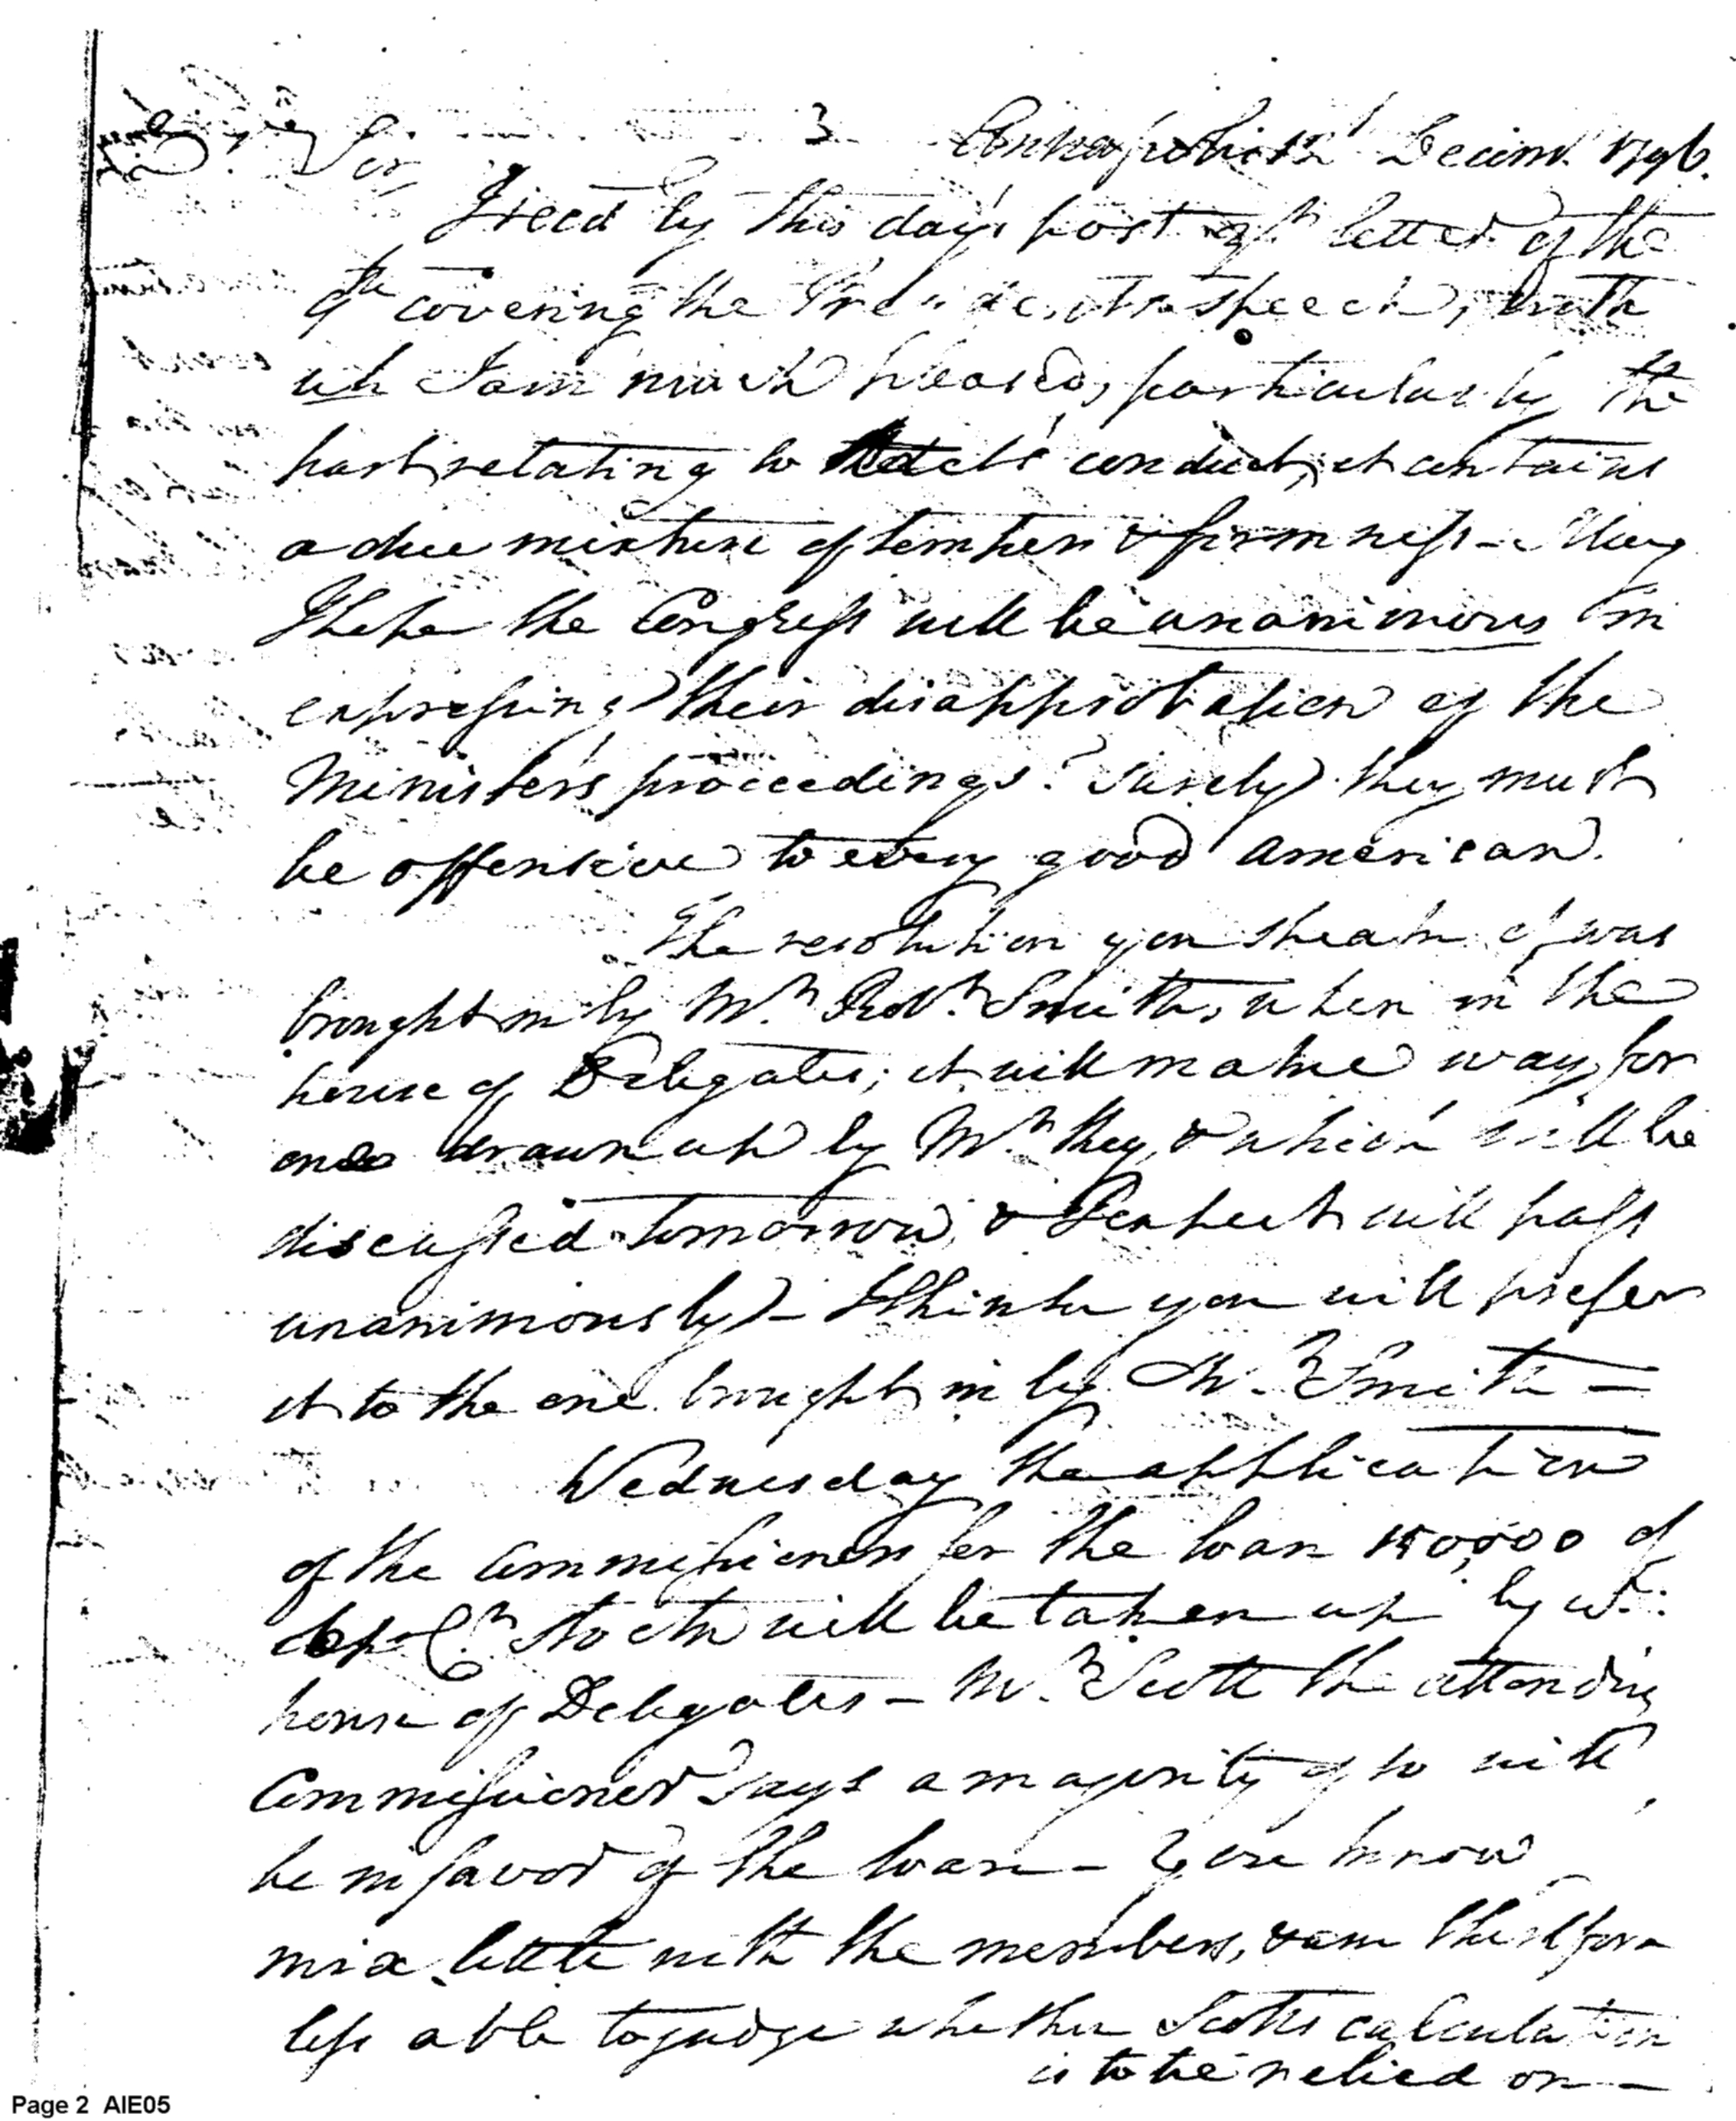 3
Annapolis Decem. 1796.
Sir,
I recd by this day's post yr letter of the
9th covering the President's speech, with
wh I am much pleased, particularly the
part relating to Adet's conduct, it contains
a due mixture of temper & firmness — May
I hope the Congress will be unanimous in
expressing their disapprobation of the
Minister's proceedings? Surely they must
be offensive to every good American.
The resolution you speak of was
brought in by Mr. Robt. Smith, when in the
house of Delegates; it will make way for
one drawn up by Mr Key, & which will be
discussed tomorrow, & I expect will pass
unanimously — I think you will prefer
it to the one brought in by Mr. Smith —
Wednesday the application
of the Commissioners for the loan 150,000 of
6 pr Ct. stock will be taken up by ye.
house of Delegates — Mr. Scott the attending
Commissioner says a majority of 10 will
be in favor of the loan — You know
mix little with the members, & am therefore
less able to judge whether Scott's calculation
is to be relied on —
Page 2 AIE05